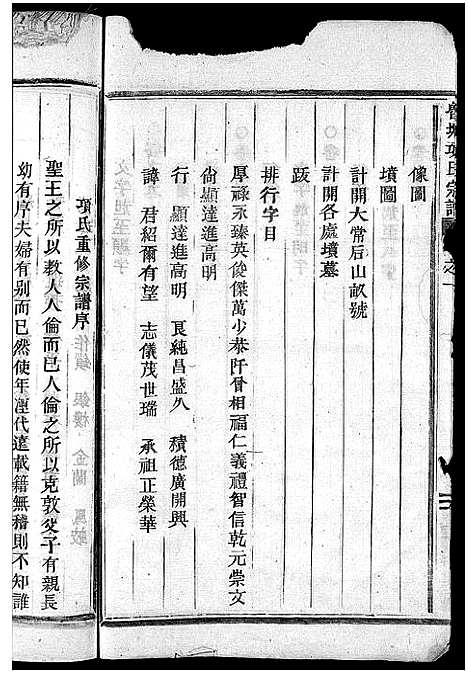 像圖
墳圖
計開大常后山畝號
計開各處墳墓
跋
排行字目
厚祿永臻英俊傑萬少恭阡曾相福仁義禮智信乾元崇文
尙顯達進高明
行 顯達進高明 良純昌盛久 積德廣開興
諱 君紹爾有望 志儀茂世瑞 承祖正榮華
項氏重修宗譜序
聖王之所以敎人人倫而已人倫之所以克敦父子有親長
幼有序夫婦有别而已然使年湮代遠載籍無稽則不知誰
項氏宗譜